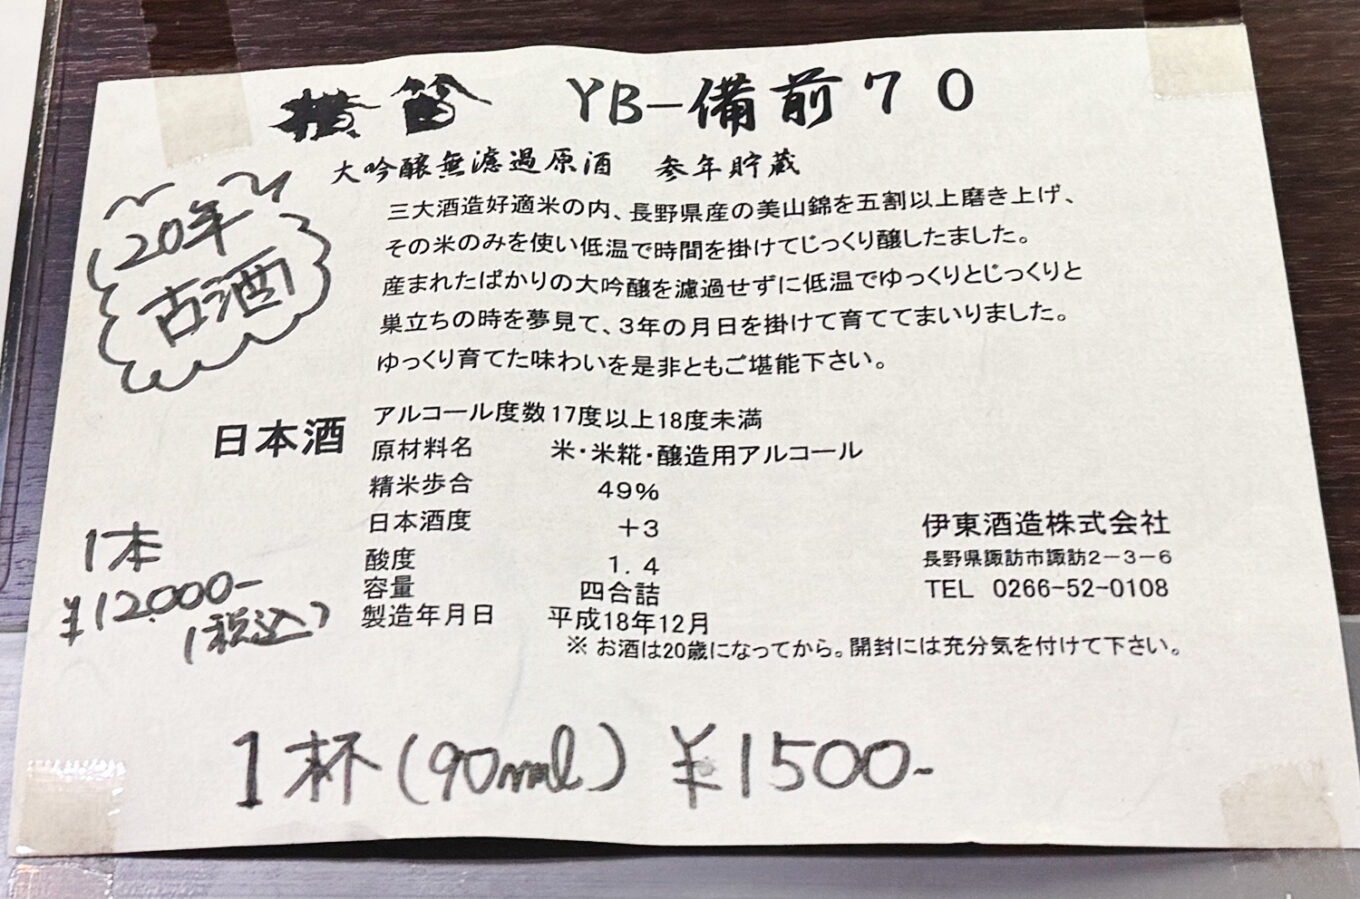 横笛 YB-備前70
大吟醸無濾過原酒 参年貯蔵
20年
古酒
三大酒造好適米の内、長野県産の美山錦を五割以上磨き上げ、
その米のみを使い低温で時間を掛けてじっくり醸したました。
産まれたばかりの大吟醸を濾過せずに低温でゆっくりとじっくりと
巣立ちの時を夢見て、3年の月日を掛けて育ててまいりました。
ゆっくり育てた味わいを是非ともご堪能下さい。
日本酒
アルコール度数 17度以上18度未満
原材料名 米・米糀・醸造用アルコール
精米歩合 49%
日本酒度 +3
酸度 1.4
容量 四合詰
製造年月日 平成18年12月
※ お酒は20歳になってから。開封には充分気を付けて下さい。
伊東酒造株式会社
長野県諏訪市諏訪2-3-6
TEL 0266-52-0108
1本
¥12,000-
(税込)
1杯(90ml) ¥1500-